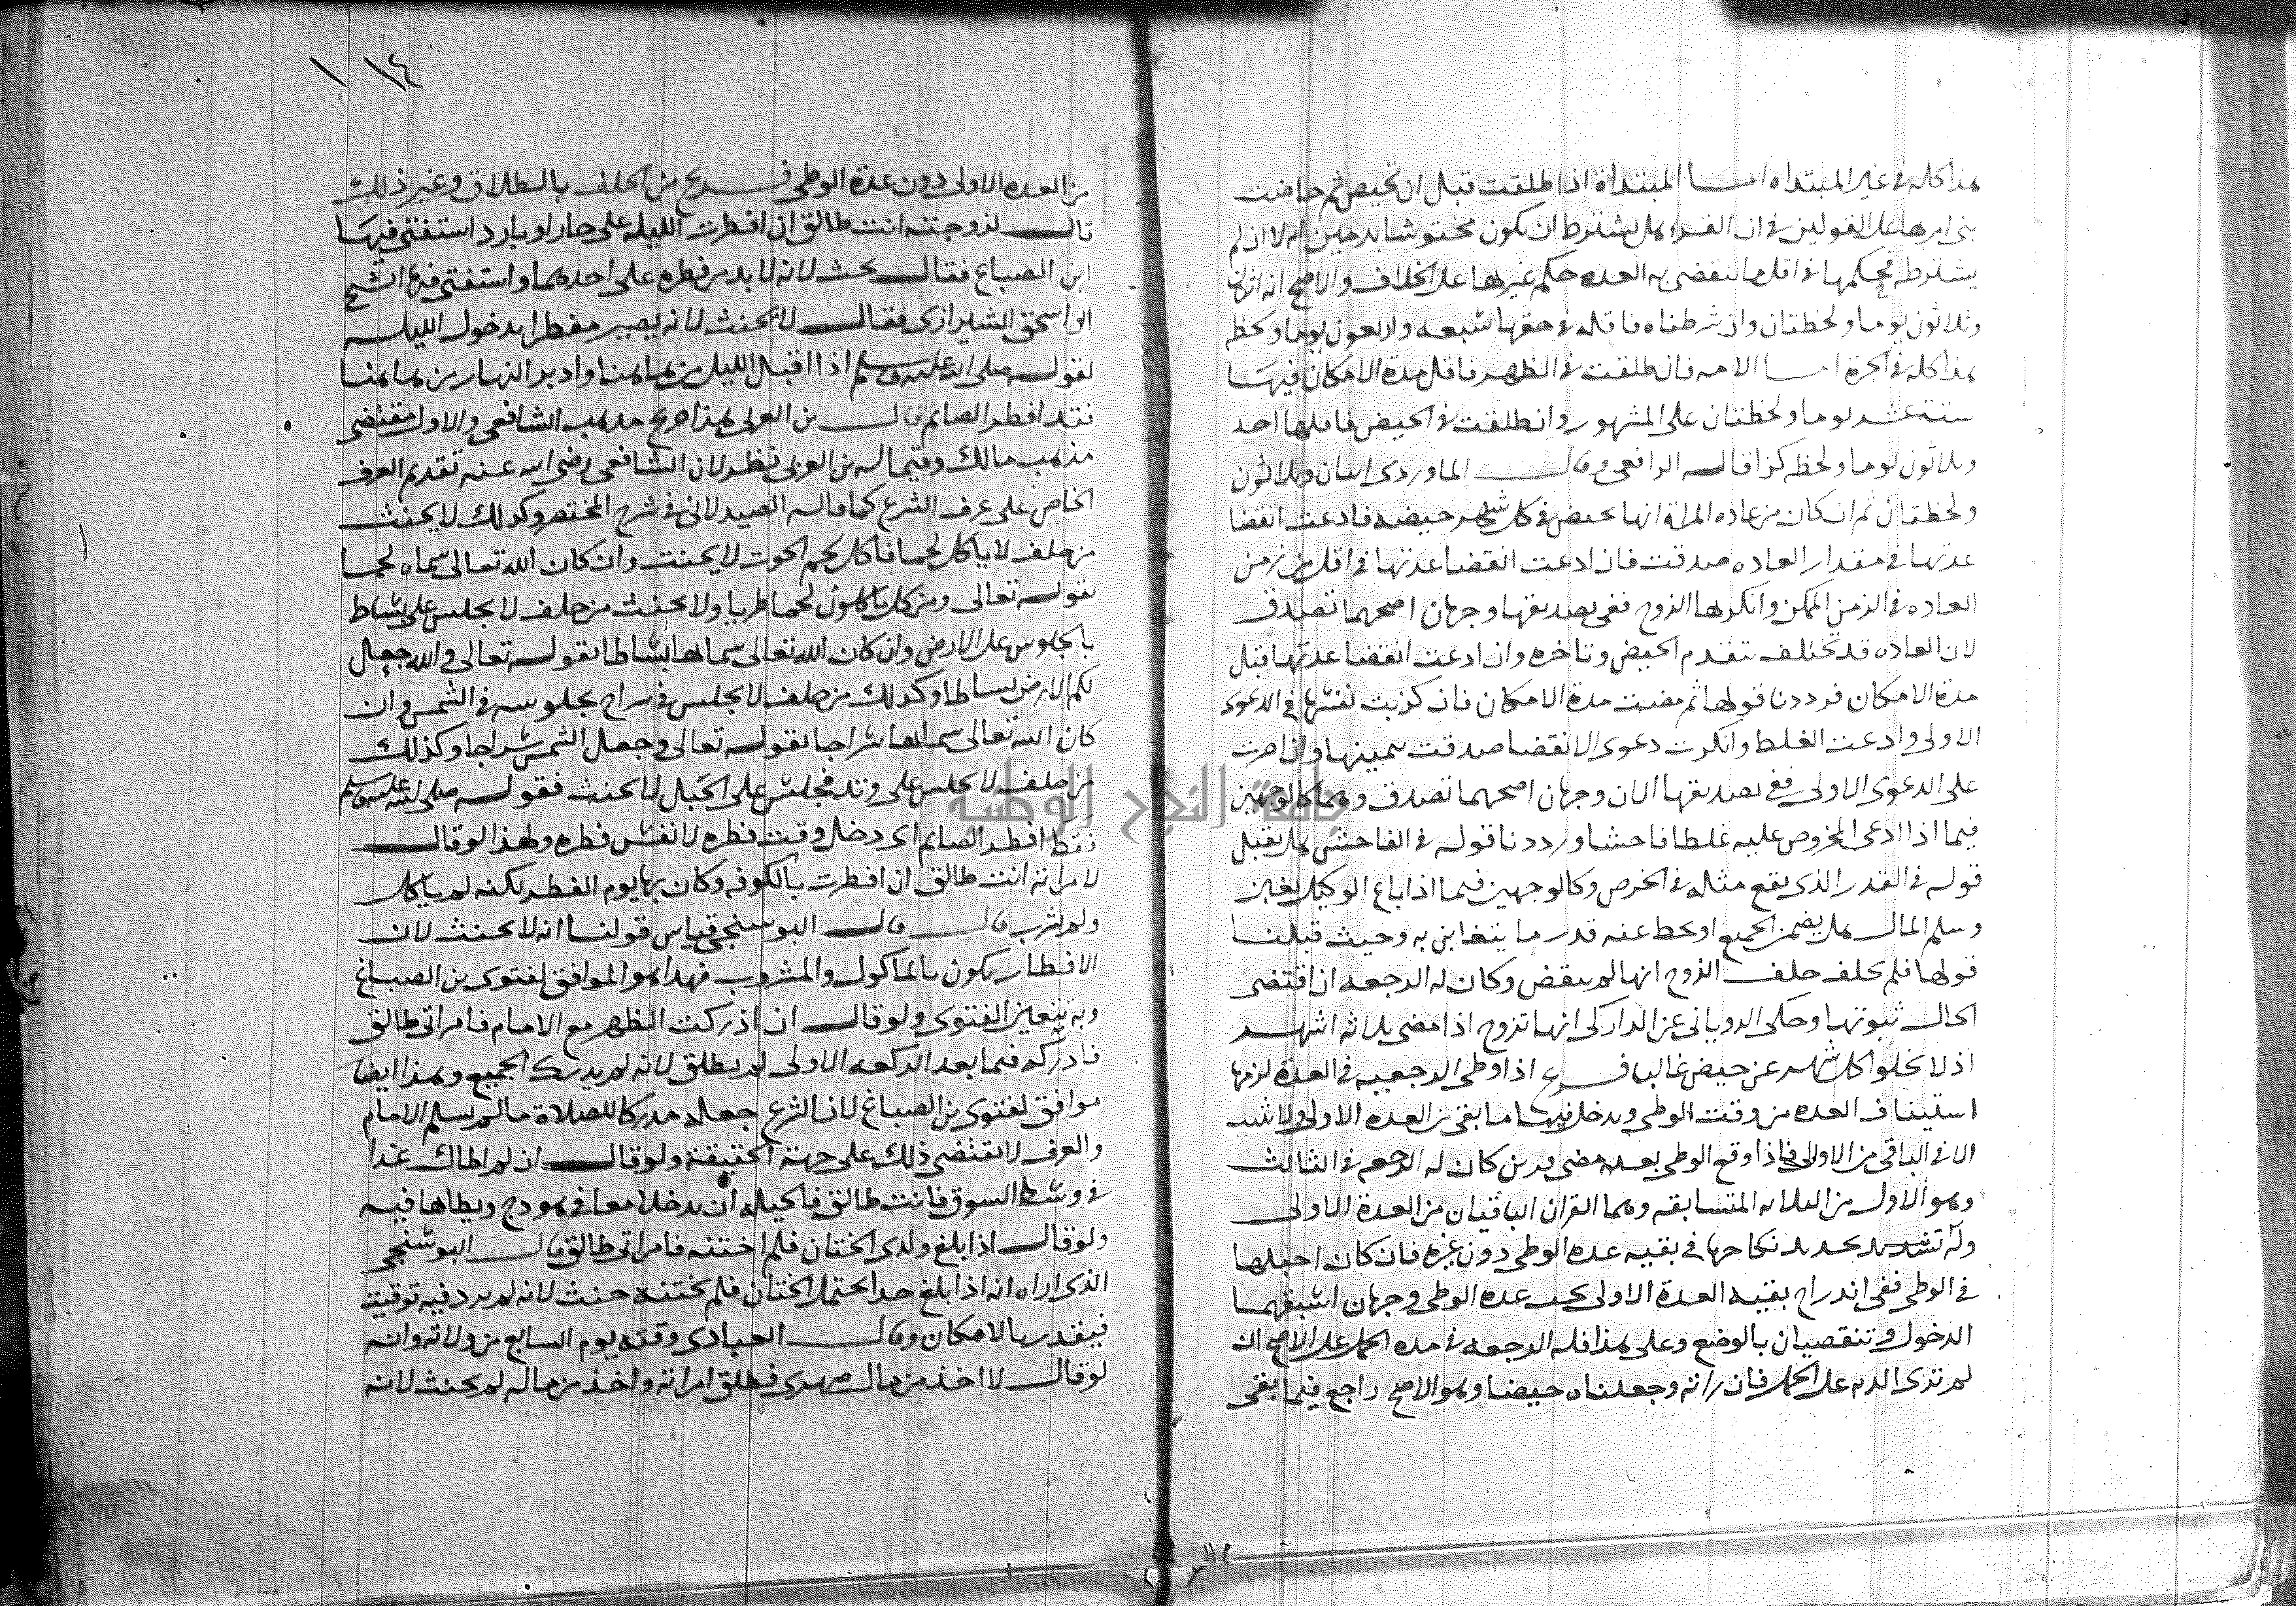 هذا كله في غير المبتداه امــا المبتداة اذا طلقت قبل ان تحيض ثم حاضت
بنى امرها على القولين في ان القرء هل يشترط ان يكون محتوشا بدمين ام لا ان لم
يشترطه فحكمها في اقل ما تنقضي به العده حكم غيرها على الخلاف والاصح انه اثنان
وثلاثون يوما ولحظتان وان شرطناه فاقله في حقها سبعه واربعون يوما ولحظه
هذا كله في الحرة امــا الامه فان طلقت في الطهر فاقل مدة الامكان فيها
ستة عشر يوما ولحظتان على المشهور وان طلقت في الحيض فاقلها احد
وثلاثون يوما ولحظه كذا قاله الرافعي وقال الماوردي اثنان وثلاثون
ولحظتان ثم ان كان من عاده المراة انها تحيض في كل شهر حيضه فادعت انقضا
عدتها في مقدار العاده صدقت فان ادعت انقضا عدتها في اقل من زمن
العاده في الزمن الممكن وانكرها الزوج ففي تصديقها وجهان اصحهما تصدق
لان العاده قد تختلف بتقدم الحيض وتاخره وان ادعت انقضا عدتها قبل
مدة الامكان فرددنا قولها ثم مضت مدة الامكان فان كذبت نفسها في الدعوى
الاولى وادعت الغلط وانكرت دعوى الانقضا صدقت بيمينها وان اصرت
على الدعوى الاولى ففي تصديقها الان وجهان اصحهما تصدق وهما كالوجهين
فيما اذا ادعى المخروص عليه غلطا فاحشا ورددنا قوله في الفاحش هل يقبل
قوله في القدر الذي يقع مثله في الخرص وكالوجهين فيما اذا باع الوكيل بغبن
وسلم المال هل يضمن الجميع او يحط عنه قدر ما يتغابن به وحيث قبلنا
قولها فلم تحلف حلف الزوج انها لم تنقض وكان له الرجعه ان اقتضى
الحال ثبوتها وحكى الروياني عن الداركي انها تزوج اذا مضى ثلاثه اشهر
اذ لا يخلوا كل شهر عن حيض غالبا فــرع اذا وطي الرجعيه في العدة لزمها
استيناف العده من وقت الوطي ويدخل فيها ما بقي من العده الاولى ولا تثبت
الا في الباقي من الاولى فاذا وقع الوطي بعد مضي قرءين كان له الرجعه في الثالث
وهو الاول من الثلاثه المتسابقه وهما القران الباقيان من العدة الاولى
نكاحها في بقيه عدة الوطي دون غيره فان كان احبلها
في الوطي ففي اندراج بقيه العدة الاولى تحت عدة الوطي وجهان اشبههما
الدخول وتنقضيان بالوضع وعلى هذا فله الرجعه في مده الحمل على الاصح ان
لم تر الدم على الحمل فان راته وجعلناه حيضا وهو الاصح راجع فيما بقي
١١٤
من العده الاولى دون عدة الوطي فــرع من الحلف بالطلاق وغير ذلك
قال لزوجته انت طالق ان افطرت الليله على حار او بارد استفتي فيها
ابن الصباغ فقال يحنث لانه لا بد من فطره على احدهما واستفتي فيها الشيخ
ابو اسحق الشيرازي فقال لا يحنث لانه يصير مفطرا بدخول الليل
لقوله صلى الله عليه وسلم اذا اقبل الليل من هاهنا وادبر النهار من هاهنا
فقد افطر الصائم قال بن العربي هذا صريح مذهب الشافعي والاول مقتضى
مذهب مالك وفيما قاله بن العربي نظر لان الشافعي رضي الله عنه تقدم العرف
الخاص على عرف الشرع كما قاله الصيدلاني في شرح المختصر وكذلك لا يحنث
من حلف لا ياكل لحما فاكل لحم الحوت لا يحنث وان كان الله تعالى سماه لحما
بقوله تعالى ومن كل تاكلون لحما طريا ولا يحنث من حلف لا يجلس على بساط
بالجلوس على الارض وان كان الله تعالى سماها بساطا بقوله تعالى والله جعل
لكم الارض بساطا وكذلك من حلف لا يجلس في سراج بجلوسه في الشمس وان
كان الله تعالى سماها سراجا بقوله تعالى وجعل الشمس سراجا وكذلك
من حلف لا يجلس على وتد فجلس على الجبل لا يحنث فقوله صلى الله عليه وسلم
فقد افطر الصائم اي دخل وقت فطره لا نفس فطره ولهذا لو قال
لامراته انت طالق ان افطرت بالكوفه وكان بها يوم الفطر لكنه لم ياكل
ولم يشرب قال قال البوسنجي قياس قولنا انه لا يحنث لان
الافطار يكون بالماكول والمشروب فهذا هو الموافق لفتوى بن الصباغ
وبه تتعين الفتوى ولو قال ان ادركت الظهر مع الامام فامراتي طالق
فادركه فيما بعد الركعه الاولى لم تطلق لانه لم يدرك الجميع وهذا ايضا
موافق لفتوى بن الصباغ لان الشرع جعله مدركا للصلاة ما لم يسلم الامام
والعرف لا يقتضي ذلك على جهة الحقيقة ولو قال ان لم اطاك غدا
في وسط السوق فانت طالق فالحيله ان يدخلا معا في هودج ويطاها فيه
ولو قال اذا بلغ ولدي الختان فلم اختنه فامراتي طالق قال البوشنجي
الذي اراه انه اذا بلغ حد احتمال الختان فلم يختنه حنث لانه لم يرد فيه توقيت
فيقدر بالامكان وقال العبادي وقته يوم السابع من ولاته وانه
لو قال لا اخذ من مال صهري فطلق امراته واخذ من ماله لم يحنث لانه
جامعة النجاح الوطنية